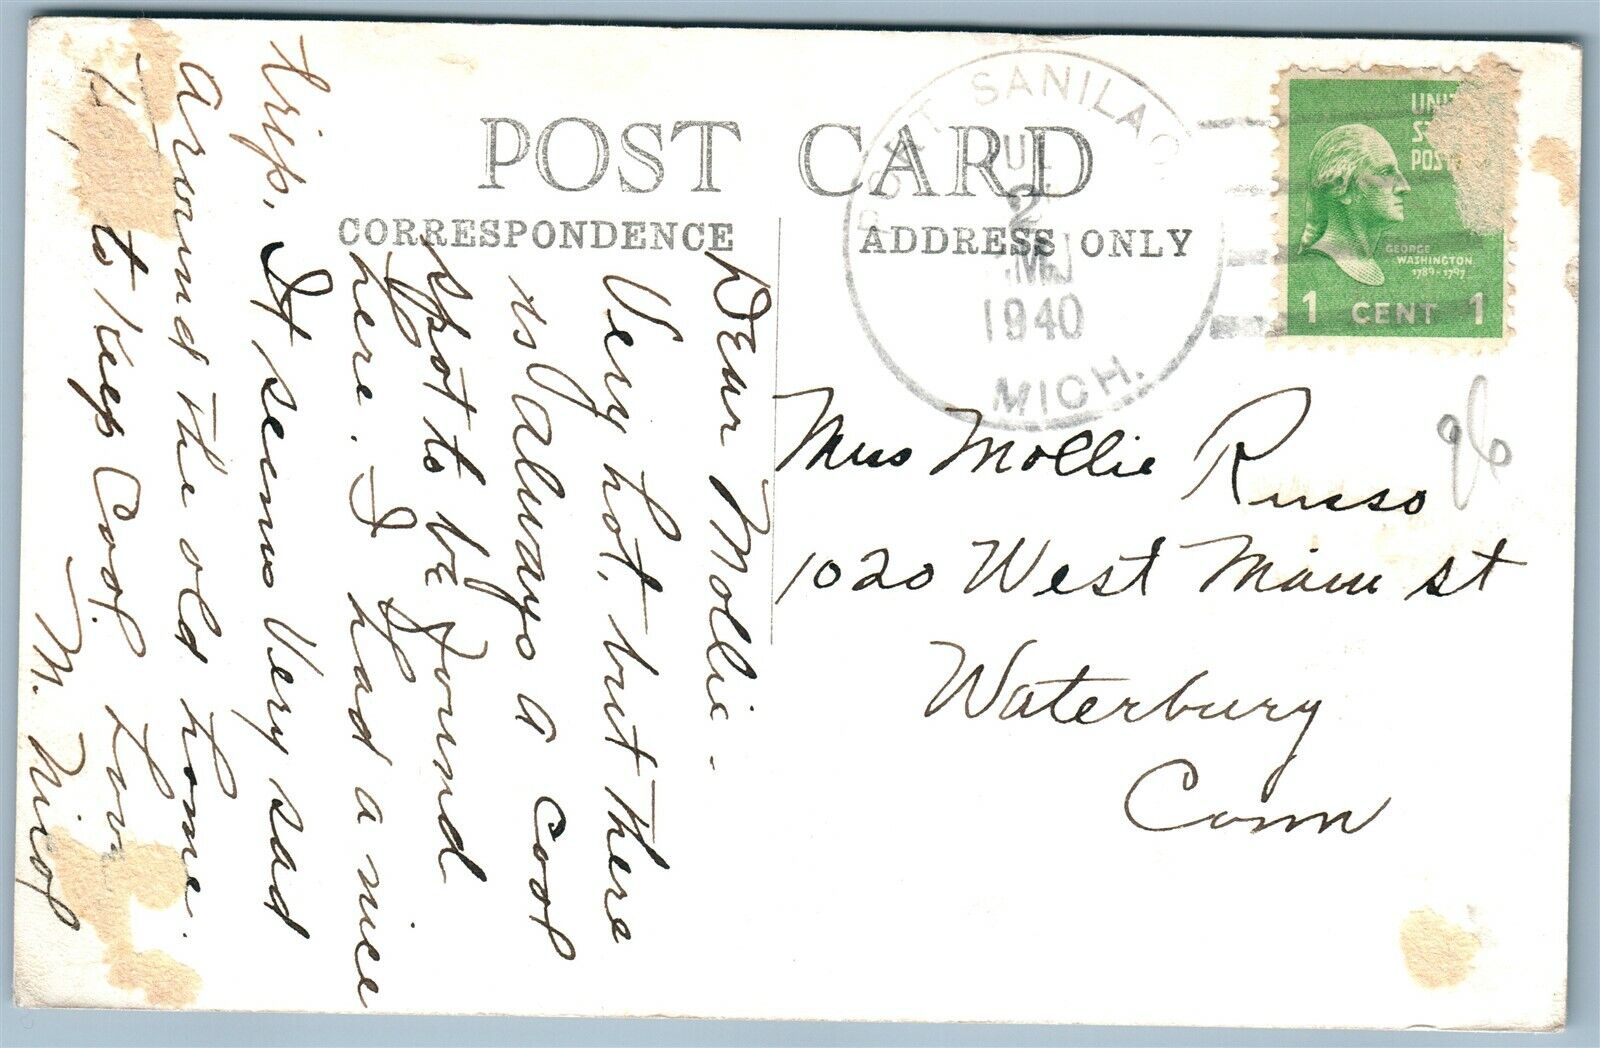 POST CARD
CORRESPONDENCE
ADDRESS ONLY
PORT SANILAC
JUL
2
1940
MICH.
UNIT
ST
POST
GEORGE
WASHINGTON
1789-1797
1 CENT 1
96
Miss Mollie Russo
1020 West Main st
Waterbury
Conn
Dear Mollie-
Very hot, but there
is always a cool
spot to be found
here. I had a nice
trip, It seems very sad
around the old home.
to keep cool. Love
M.